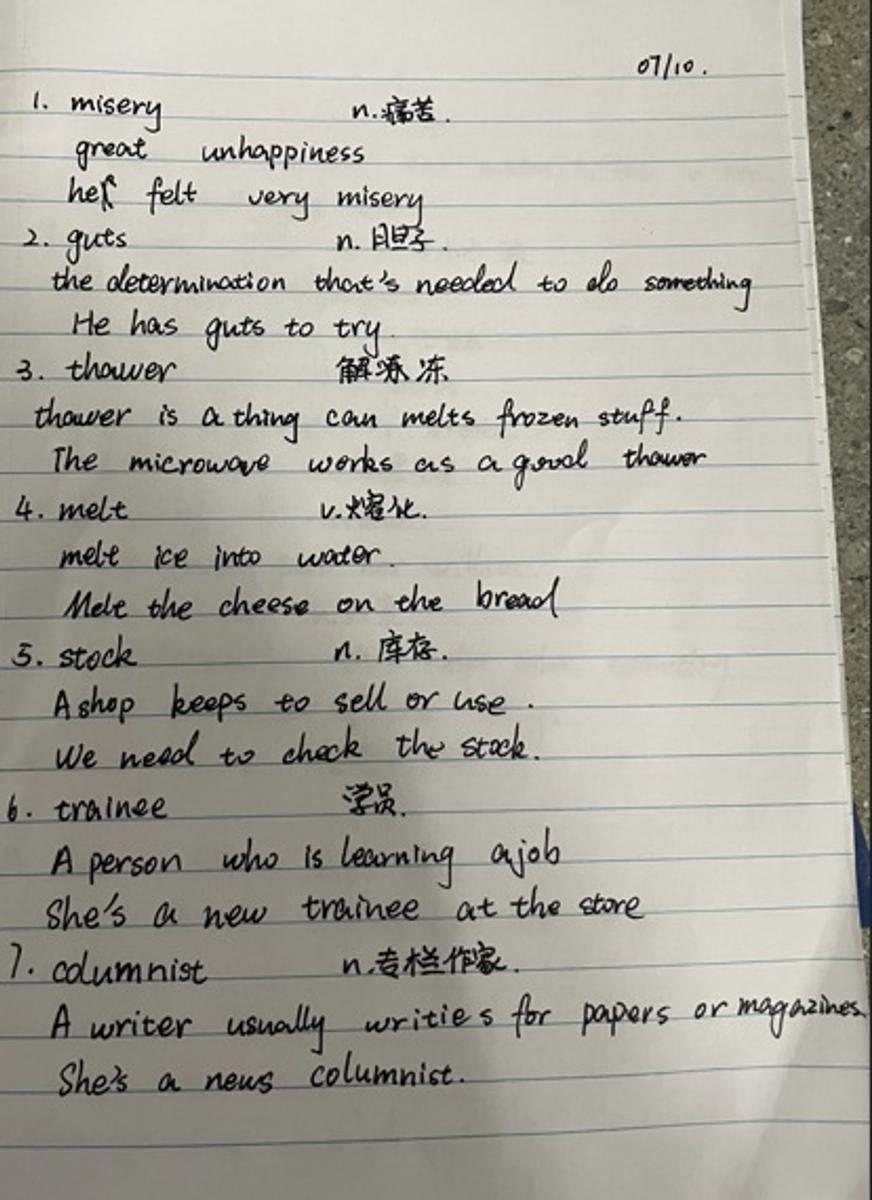 07/10.
1. misery n.痛苦.
great unhappiness
he felt very misery
2. guts n.胆子.
the determination that's needed to do something
He has guts to try.
3. thawer 解冻
thawer is a thing can melts frozen stuff.
The microwave works as a good thawer
4. melt v.熔化.
melt ice into water.
Melt the cheese on the bread
5. stock n. 库存.
A shop keeps to sell or use.
We need to check the stock.
6. trainee 学员.
A person who is learning a job
She's a new trainee at the store
7. columnist n.专栏作家.
A writer usually writies for papers or magazines.
She's a news columnist.